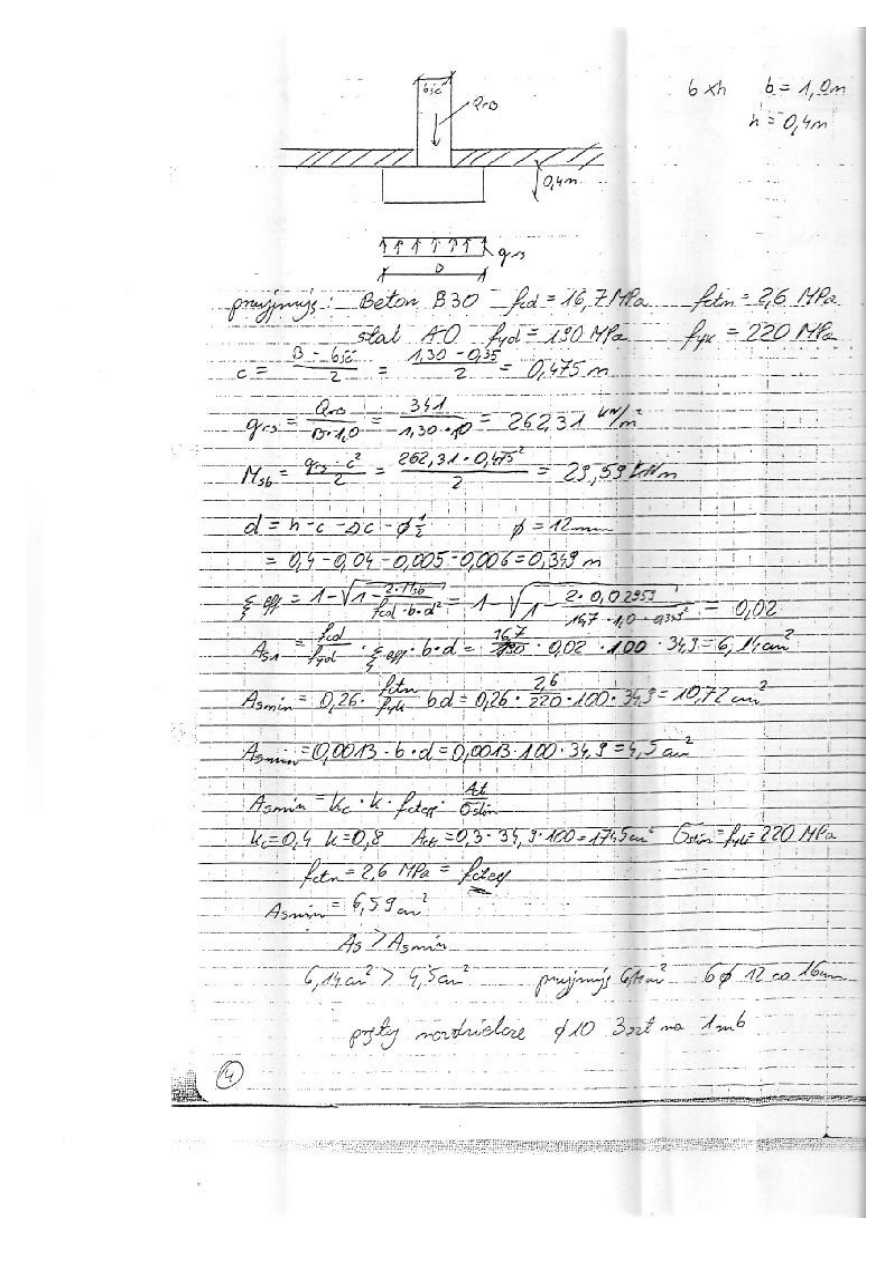 bśc
QrB
b x h b = 1,0m
h = 0,4m
0,4m
qrs
B
przyjmuję: Beton B30 fcd = 16,7 MPa fctm = 2,6 MPa
stal A0 fyd = 190 MPa fyk = 220 MPa
c = (B - bśc)/2 = (1,30 - 0,35)/2 = 0,475 m
qrs = QrB/(B·1,0) = 341/(1,30·1,0) = 262,31 kN/m²
Msb = (qrs · c²)/2 = (262,31 · 0,475²)/2 = 29,59 kNm
d = h - c - Δc - ϕ½ ϕ = 12mm
= 0,4 - 0,04 - 0,005 - 0,006 = 0,349 m
ξeff = 1 - √(1 - (2·Msb)/(fcd·b·d²)) = 1 - √(1 - (2·0,02959)/(16,7·1,0·0,349²)) = 0,02
As1 = fcd/fyd · ξeff · b·d = 16,7/190 · 0,02 · 100 · 34,9 = 6,14cm²
Asmin = 0,26· fctm/fyk bd = 0,26 · 2,6/220 · 100 · 34,9 = 10,72 cm²
Asmin = 0,0013 · b · d = 0,0013·100·34,9 = 4,5 cm²
Asmin = kc · k · fcteff · At/σslim
kc = 0,4 k = 0,8 Act = 0,3 · 34,9 · 100 = 1745cm² σslim = fyk = 220 MPa
fctm = 2,6 MPa = fcteff
Asmin = 6,59cm²
As > Asmin
6,14cm² > 4,5cm² przyjmuję cm² 6ϕ 12 co 16cm
pręty rozdzielcze ϕ10 3szt na 1mb
4